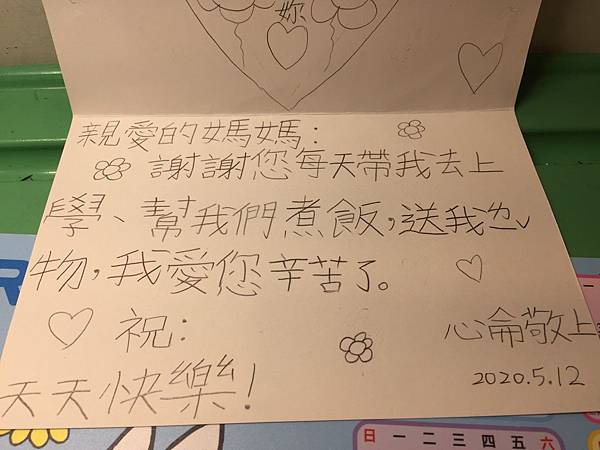 妳
親愛的媽媽：
謝謝您每天帶我去上
學、幫我們煮飯，送我ㄌㄧˇ
物，我愛您辛苦了。
祝：
心淪敬上
天天快樂！
2020.5.12
日 一 二 三 四 五 六